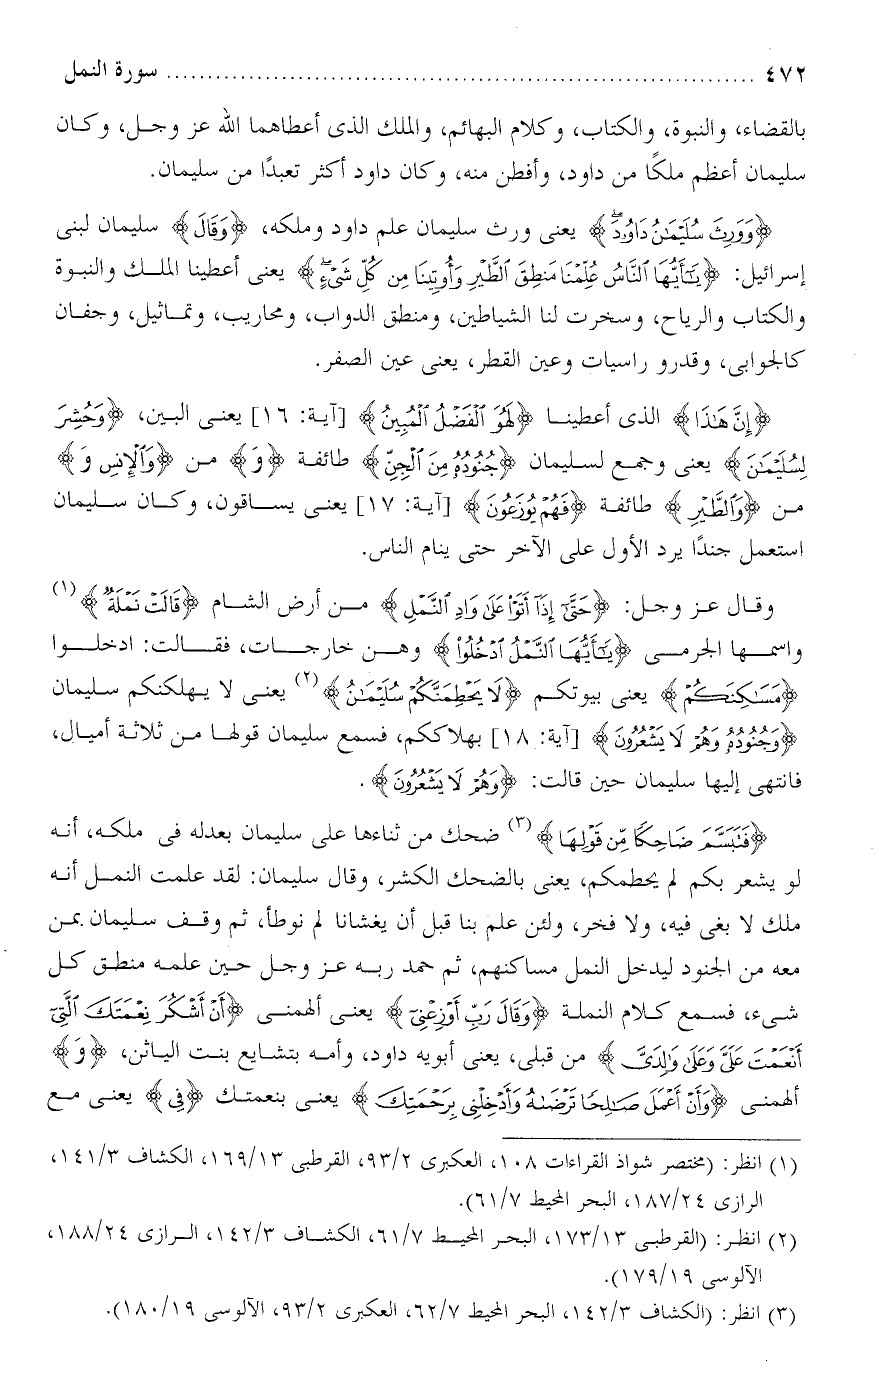 ٤٧٢ ........................................................................ سورة النمل
بالقضاء، والنبوة، والكتاب، وكلام البهائم، والملك الذى أعطاهما الله عز وجل، وكان
سليمان أعظم ملكًا من داود، وأفطن منه، وكان داود أكثر تعبدًا من سليمان.
﴿وَوَرِثَ سُلَيْمَٰنُ دَاوُۥدَۖ﴾ يعنى ورث سليمان علم داود وملكه، ﴿وَقَالَ﴾ سليمان لبنى
إسرائيل: ﴿يَٰٓأَيُّهَا ٱلنَّاسُ عُلِّمْنَا مَنطِقَ ٱلطَّيْرِ وَأُوتِينَا مِن كُلِّ شَىْءٍۖ﴾ يعنى أعطينا الملك والنبوة
والكتاب والرياح، وسخرت لنا الشياطين، ومنطق الدواب، ومحاريب، وتماثيل، وجفان
كالجوابى، وقدرو راسيات وعين القطر، يعنى عين الصفر.
﴿إِنَّ هَٰذَا﴾ الذى أعطينا ﴿لَهُوَ ٱلْفَضْلُ ٱلْمُبِينُ﴾ [آية: ١٦] يعنى البين، ﴿وَحُشِرَ
لِسُلَيْمَٰنَ﴾ يعنى وجمع لسليمان ﴿جُنُودُهُۥ مِنَ ٱلْجِنِّ﴾ طائفة ﴿وَ﴾ من ﴿وَٱلْإِنسِ وَ﴾
من ﴿وَٱلطَّيْرِ﴾ طائفة ﴿فَهُمْ يُوزَعُونَ﴾ [آية: ١٧] يعنى يساقون، وكان سليمان
استعمل جندًا يرد الأول على الآخر حتى ينام الناس.
وقال عز وجل: ﴿حَتَّىٰٓ إِذَآ أَتَوْا۟ عَلَىٰ وَادِ ٱلنَّمْلِ﴾ من أرض الشام ﴿قَالَتْ نَمْلَةٌ﴾(١)
واسمها الجرمى ﴿يَٰٓأَيُّهَا ٱلنَّمْلُ ٱدْخُلُوا۟﴾ وهن خارجات، فقالت: ادخلوا
﴿مَسَٰكِنَكُمْ﴾ يعنى بيوتكم ﴿لَا يَحْطِمَنَّكُمْ سُلَيْمَٰنُ﴾(٢) يعنى لا يهلكنكم سليمان
﴿وَجُنُودُهُۥ وَهُمْ لَا يَشْعُرُونَ﴾ [آية: ١٨] بهلاككم، فسمع سليمان قولها من ثلاثة أميال،
فانتهى إليها سليمان حين قالت: ﴿وَهُمْ لَا يَشْعُرُونَ﴾.
﴿فَتَبَسَّمَ ضَاحِكًا مِّن قَوْلِهَا﴾(٣) ضحك من ثناءها على سليمان بعدله فى ملكه، أنه
لو يشعر بكم لم يحطمكم، يعنى بالضحك الكشر، وقال سليمان: لقد علمت النمل أنه
ملك لا بغى فيه، ولا فخر، ولئن علم بنا قبل أن يغشانا لم نوطأ، ثم وقف سليمان بمن
معه من الجنود ليدخل النمل مساكنهم، ثم حمد ربه عز وجل حين علمه منطق كل
شىء، فسمع كلام النملة ﴿وَقَالَ رَبِّ أَوْزِعْنِىٓ﴾ يعنى ألهمنى ﴿أَنْ أَشْكُرَ نِعْمَتَكَ ٱلَّتِىٓ
أَنْعَمْتَ عَلَىَّ وَعَلَىٰ وَٰلِدَىَّ﴾ من قبلى، يعنى أبويه داود، وأمه بتشايع بنت الياثن، ﴿وَ﴾
ألهمنى ﴿وَأَنْ أَعْمَلَ صَٰلِحًا تَرْضَىٰهُ وَأَدْخِلْنِى بِرَحْمَتِكَ﴾ يعنى بنعمتك ﴿فِى﴾ يعنى مع
(١) انظر: (مختصر شواذ القراءات ١٠٨، العكبرى ٩٣/٢، القرطبى ١٦٩/١٣، الكشاف ١٤١/٣،
الرازى ١٨٧/٢٤، البحر المحيط ٦١/٧).
(٢) انظر: (القرطبى ١٧٣/١٣، البحر المحيط ٦١/٧، الكشاف ١٤٢/٣، الرازى ١٨٨/٢٤،
الآلوسى ١٧٩/١٩).
(٣) انظر: (الكشاف ١٤٢/٣، البحر المحيط ٦٢/٧، العكبرى ٩٣/٢، الآلوسى ١٨٠/١٩).